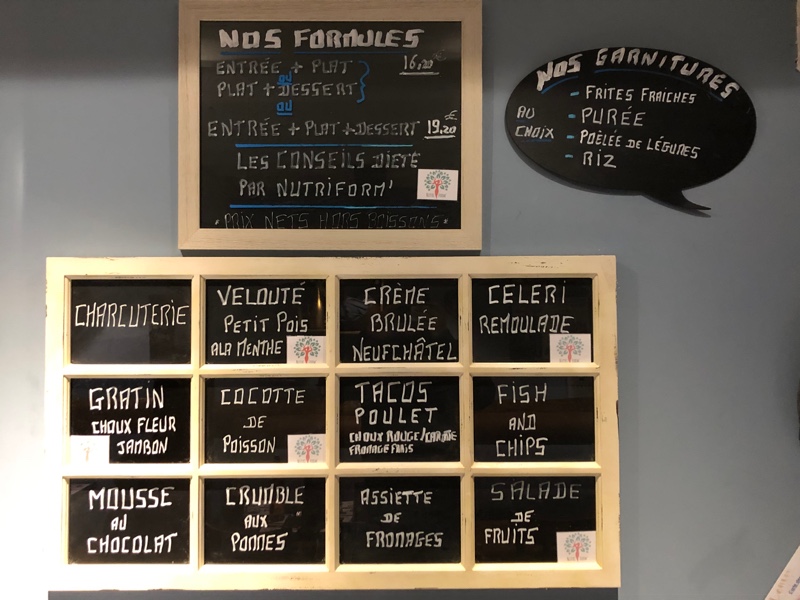 NOS FORMULES
ENTRÉE + PLAT 16,20€
OU
PLAT + DESSERT
OU
ENTRÉE + PLAT + DESSERT 19,20€
LES CONSEILS DIETE
PAR NUTRIFORM'
*PRIX NETS HORS BOISSONS*
NOS GARNITURES
AU CHOIX
- FRITES FRAICHES
- PURÉE
- POÊLÉE DE LÉGUMES
- RIZ
CHARCUTERIE
VELOUTÉ
PETIT POIS
A LA MENTHE
CRÈME
BRULÉE
NEUFCHÂTEL
CELERI
REMOULADE
GRATIN
CHOUX FLEUR
JAMBON
COCOTTE
DE
POISSON
TACOS
POULET
CHOUX ROUGE/CAROTTE
FROMAGE FRAIS
FISH
AND
CHIPS
MOUSSE
AU
CHOCOLAT
CRUMBLE
AUX
POMMES
ASSIETTE
DE
FROMAGES
SALADE
DE
FRUITS